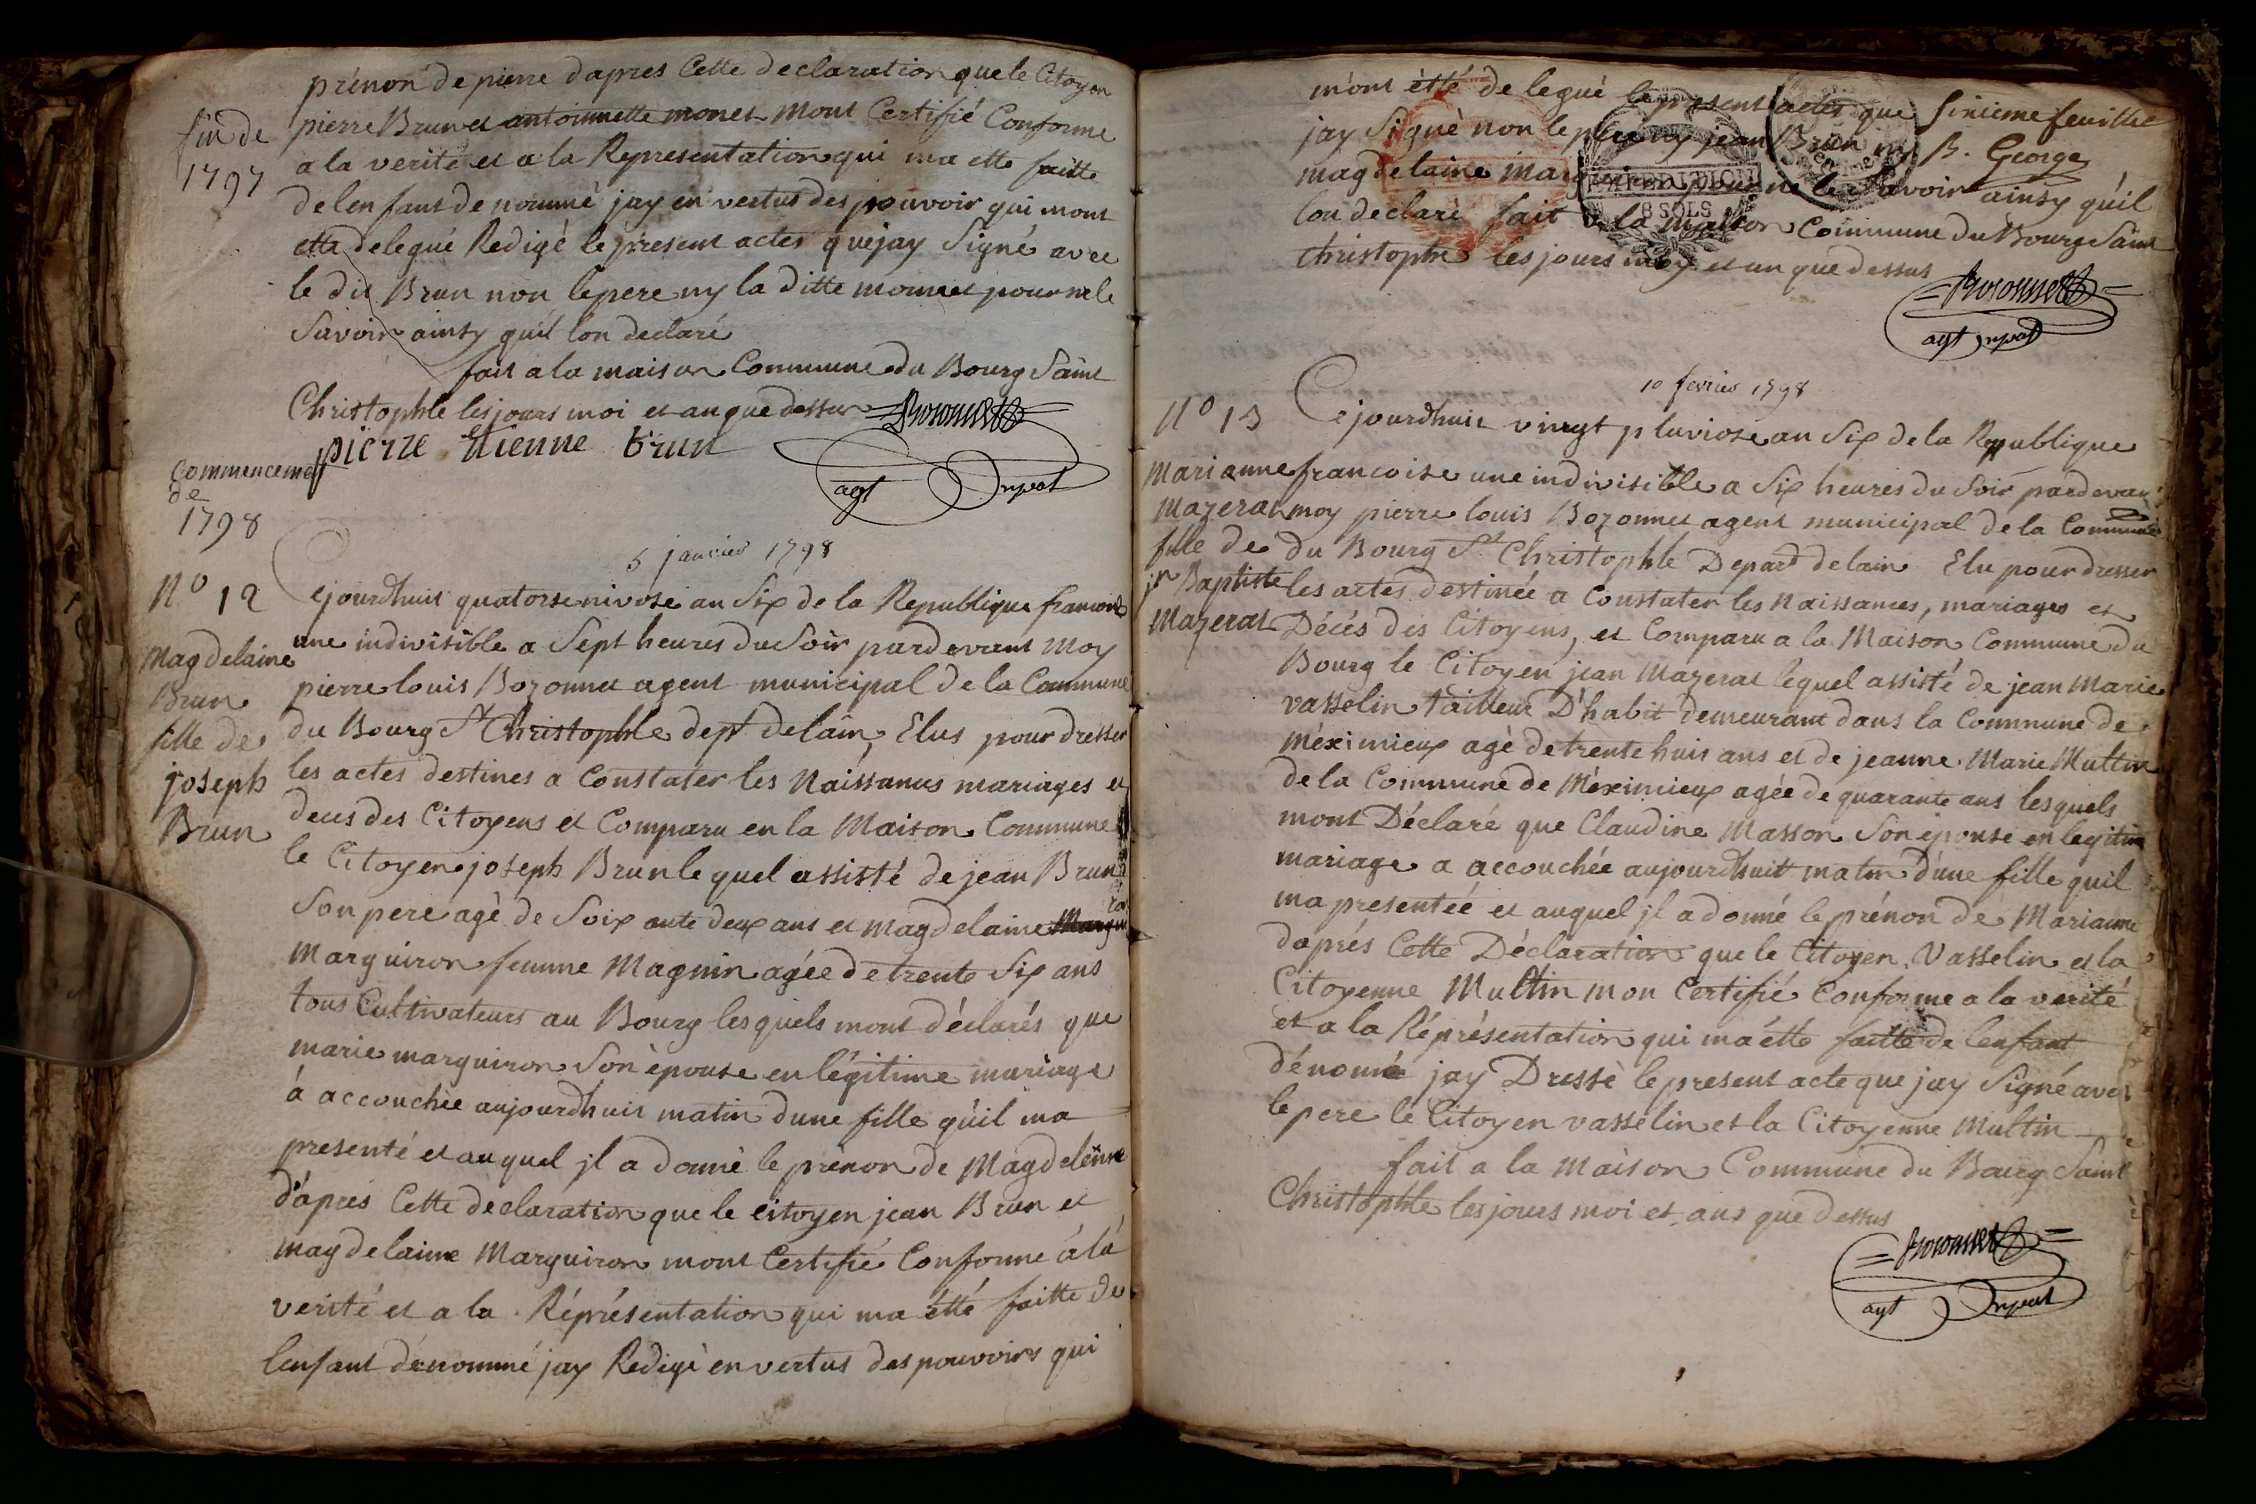 prénon de pierre dapres Cette declaration que le Citoyen
fin de
1797
pierre Brun et antoinnette monet mont Certifié Conforme
a la verité et a la Representation qui ma ette faitte
de lenfant de nommé jay en vertus des pouvoir qui mont
ette delegué Redigé le présent actes que jay Signé avec
le dit Brun non lepere ny la ditte monnet pour ne le
Savoir ainsy qu'il lon declaré
fait a la maison Commune du Bourg Saint
Christophle les jours moi et an que dessus Bozonnet
pierre Etienne brun
agt
Commencement
de
1798
5 janvier 1798
N° 12
Magdelaine
Brun
fille de
joseph
Brun
Cejourdhuit quatorse nivose an Six de la Republique francoise
une indivisible a Sept heures du Soir pardevant moy
pierre louis Bozonnet agent municipal de la Commune
du Bourg St Christophle dept delain, Elus pour dresser
les actes destines a Constater les Naissances mariages et
deces des Citoyens et Comparu en la Maison Commune
le Citoyen joseph Brun le quel assisté de jean Brun
Son pere agè de Soix ante deux ans et magdelaine
Marguiron femme Magnin agée de trente Six ans
tous Cultivateurs au Bourg les quels mont déclarés que
marie marguiron Son èpouse en légitime mariage
à accouchée aujourdhuit matin dune fille qu'il ma
presenté et au quel jl a donné le prénon de Magdeleine
d'après Cette declaration que le citoyen jean Brun et
magdelaine Marguiron mont Certifié Conforme à la
verité et a la Réprésentation qui ma étté faitte de
lenfant dénommé jay Redigé en vertus des pouvoirs qui
m'ont étté de legué le present actes que Sixieme feuille
jay Signè non le pere ny jean Brun ny B. George
magdelaine marguiron pour ne le Savoir ainsy qu'il
lon declaré fait a la maison Commune du Bourg Saint
Christophe les jours moy et an que dessus
EXPEDITION
8 SOLS
Bozonnet
agt
10 fevrier 1798
N° 13
Marianne
Mazerat
fille de
jn Baptiste
Mazerat
Cejourdhuit vingt pluviose an Six de la Republique
francoise une indivisible a Six heures du Soir pardevant
moy pierre louis Bozonnet agent municipal de la Commune
du Bourg St Christophle Depart delain Elu pour dresser
les actes destinée a Constater les Naissances, mariages et
Décés des Citoyens, et Comparu a la Maison Commune du
Bourg le Citoyen jean Mazerat lequel assisté de jean Marie
vasselin tailleur D'habit demeurant dans la Commune de
Méximieux agè de trente huit ans et de jeanne Marie Multin
de la Commune de Méximieux agée de quarante ans lesquels
mont Déclaré que Claudine Masson Son épouse en legitime
mariage a accouchée aujourdhuit matin d'une fille quil
ma presentéé et auquel jl a donné le prénon de Marianne
daprés Cette Déclaration que le Citoyen Vasselin et la
Citoyenne Multin mon Certifié Conforme a la verité
et a la Réprésentation qui ma étte faitte de lenfant
dénomé jay Dressè le present acte que jay Signé avec
le pere le Citoyen vasselin et la Citoyenne Multin
fait a la Maison Commune du Bourg Saint
Christophle les jours moi et ans que dessus
Bozonnet
agt